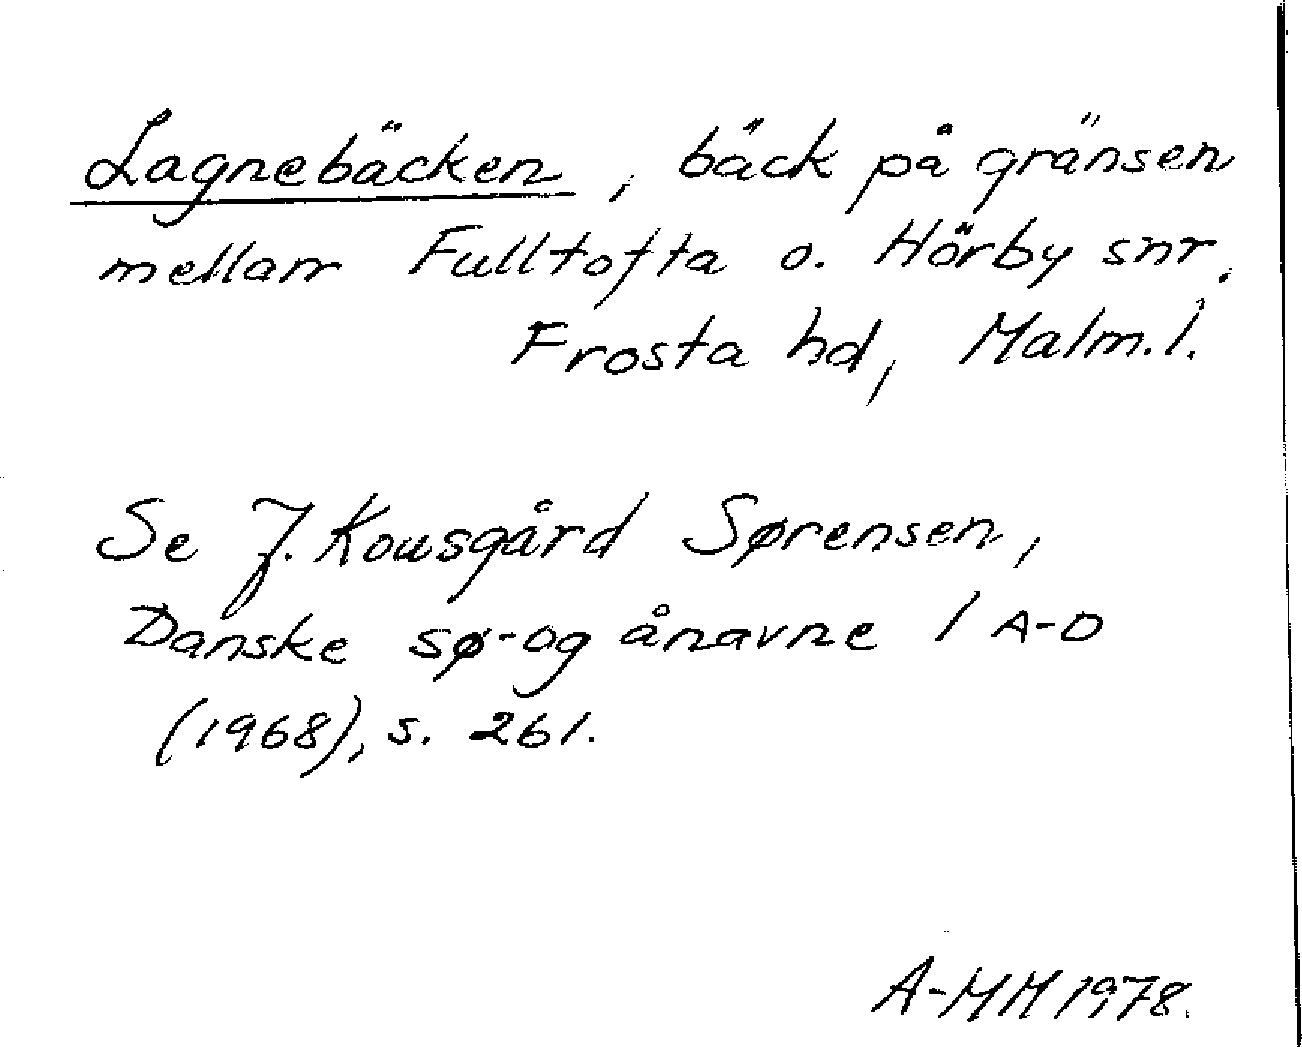 Lagnebäcken, bäck på gränsen
mellan Fulltofta o. Hörby snr.
Frosta hd, Malm.l.
Se J. Kousgård Sørensen,
Danske sø- og ånavne 1 A-D
(1968), s. 261.
A-MM 1978.